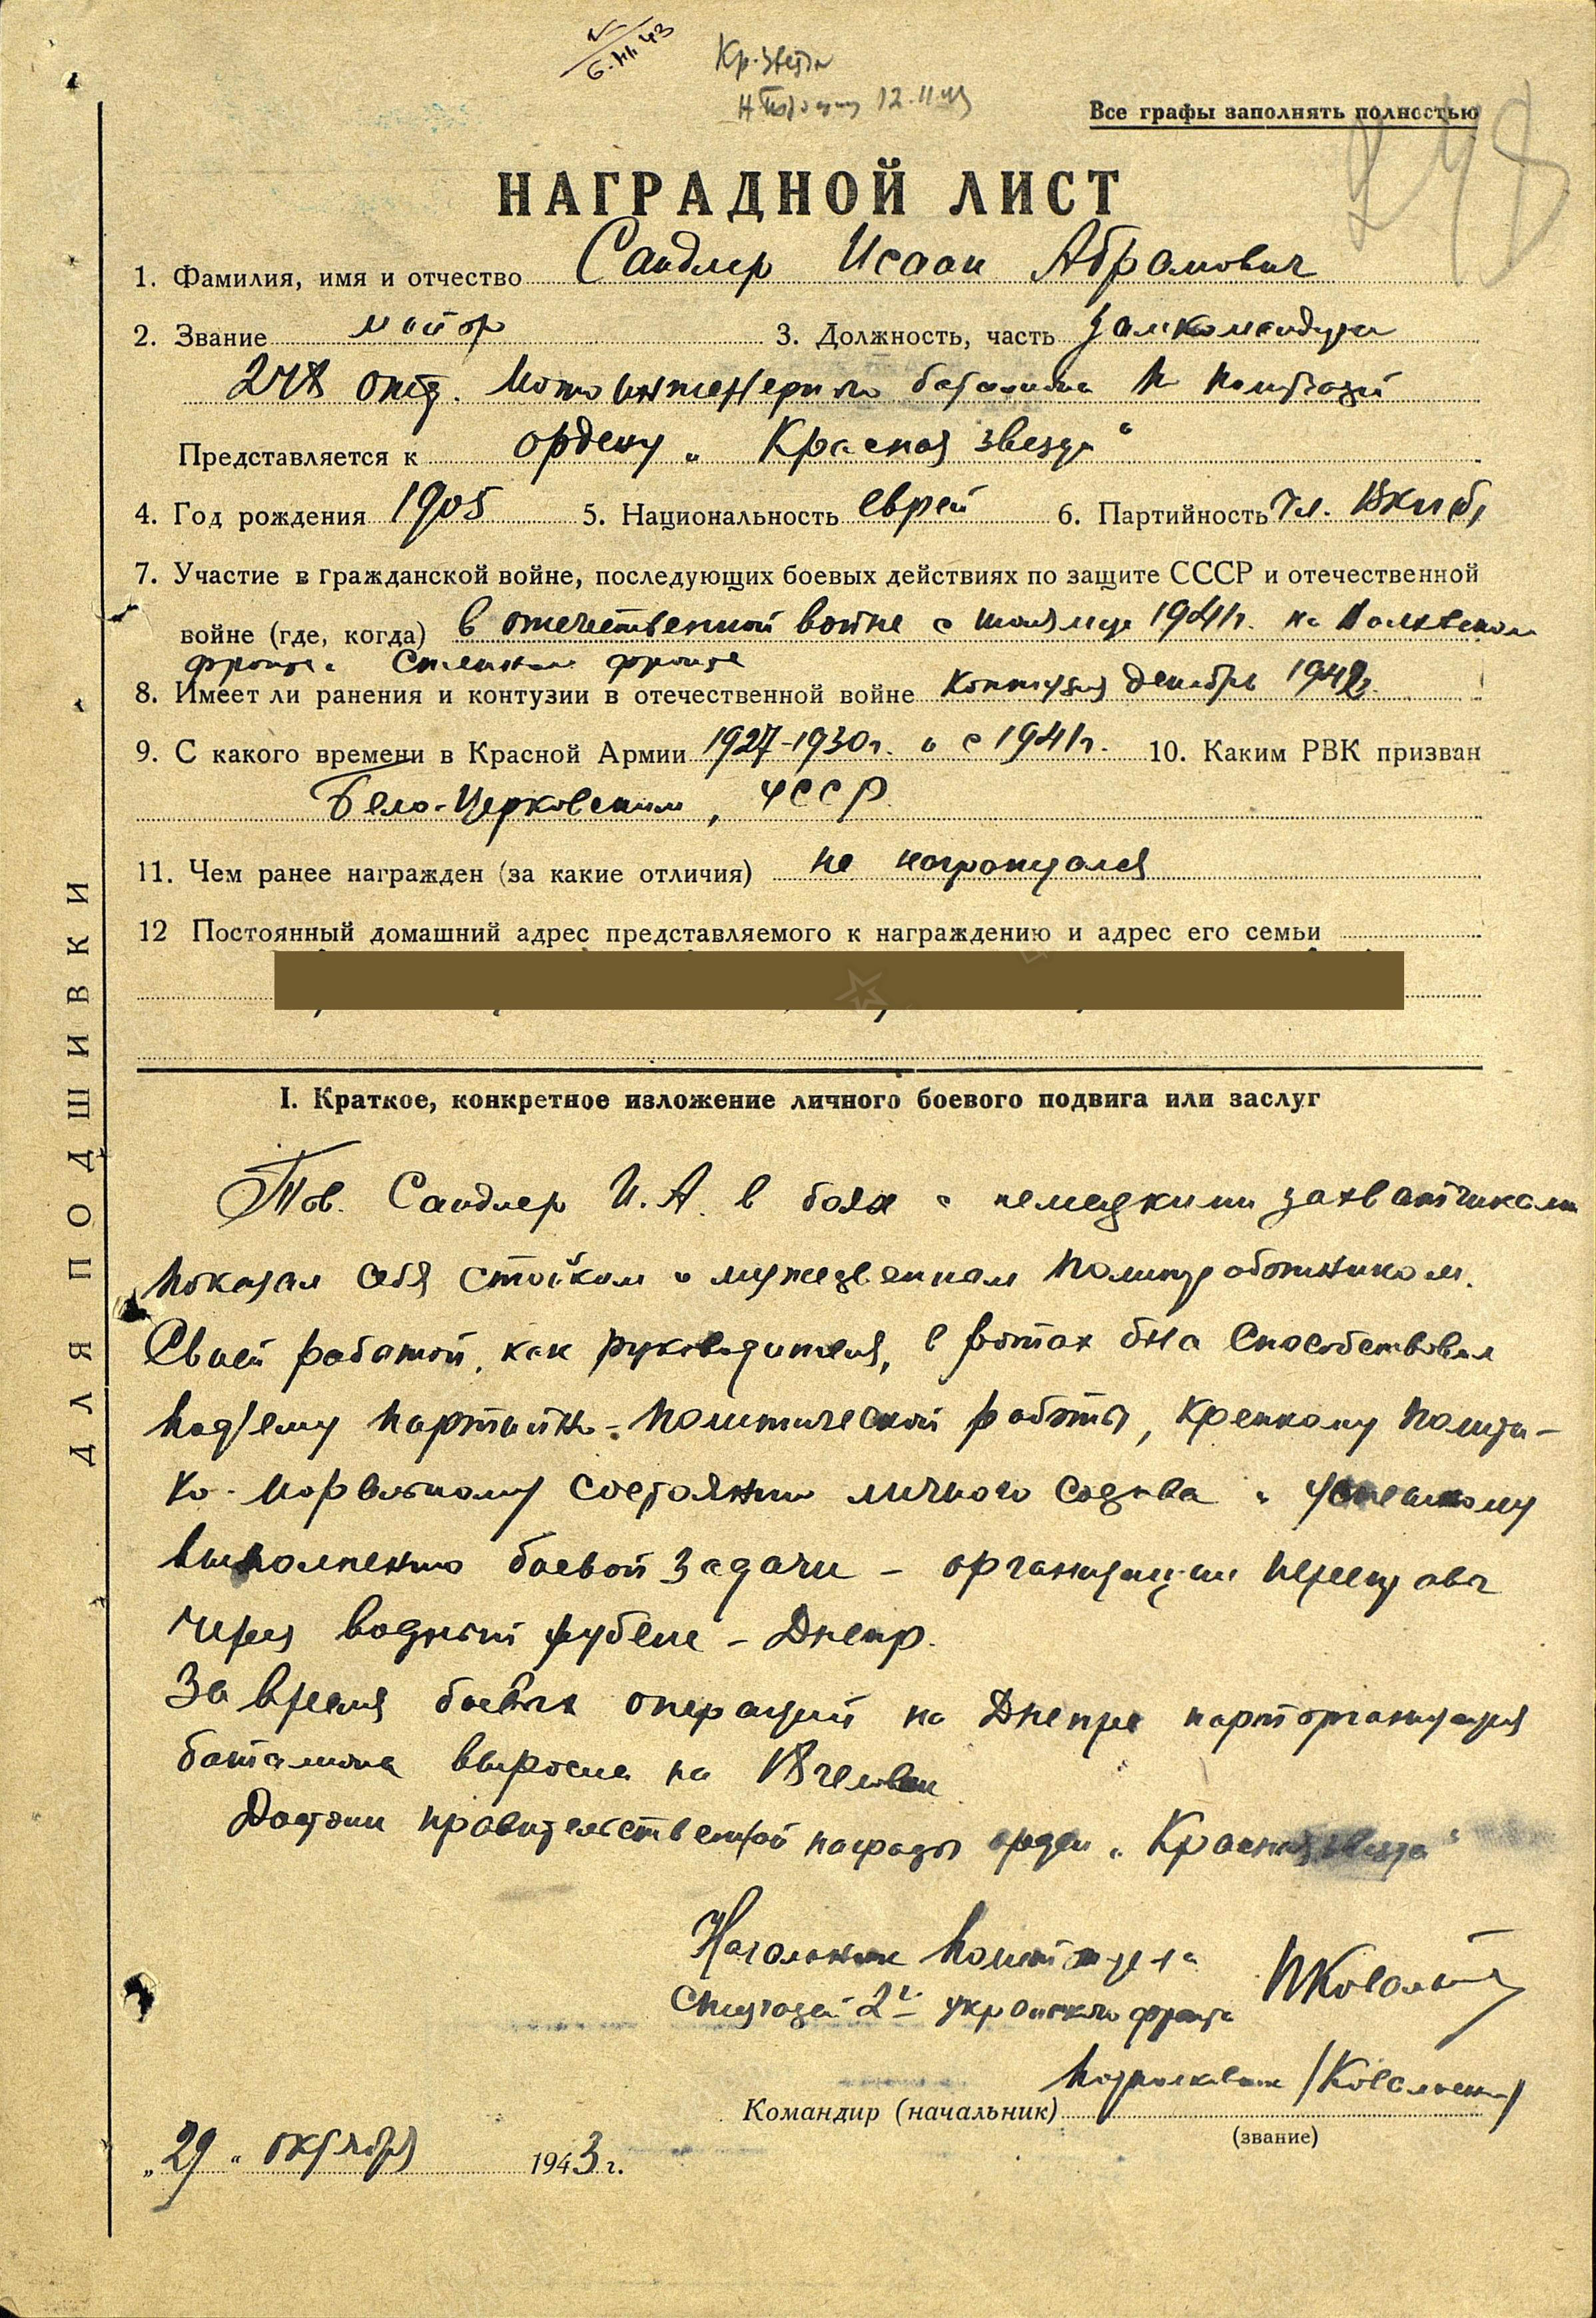 6.11.43
Кр. звезда
12.11.43
Все графы заполнять полностью
248
НАГРАДНОЙ ЛИСТ
1. Фамилия, имя и отчество Сандлер Исаак Абрамович
2. Звание майор 3. Должность, часть Замкомандира
248 отд. Мото инженерного батальона по политчасти
Представляется к ордену „Красная звезда“
4. Год рождения 1905 5. Национальность еврей 6. Партийность чл. ВКП(б)
7. Участие в гражданской войне, последующих боевых действиях по защите СССР и отечественной
войне (где, когда) в отечественной войне с 1941г. на
фронте. Степном фронте
8. Имеет ли ранения и контузии в отечественной войне контузия декабрь 1942г.
9. С какого времени в Красной Армии 1927-1930г. и с 1941г. 10. Каким РВК призван
Бело-Церковским, УССР
11. Чем ранее награжден (за какие отличия) не награждался
12 Постоянный домашний адрес представляемого к награждению и адрес его семьи
ДЛЯ ПОДШИВКИ
I. Краткое, конкретное изложение личного боевого подвига или заслуг
Тов. Сандлер И.А. в боях с немецкими захватчиками
показал себя стойким и мужественным политработником.
Своей работой, как руководителя, в ротах б-на способствовал
под'ему партийно-политической работы, крепкому полити-
ко-моральному состоянию личного состава и успешному
выполнению боевой задачи – организации переправ
через водный рубеж – Днепр.
За время боевых операций на Днепре парторганизация
батальона выросла на 18 человек
Достоин правительственной награды орден „Красная звезда“
Начальник политотдела
спецчастей 2го украинского фронта
подполковник /Коваленко/
Командир (начальник)
(звание)
„29“ октября 1943 г.